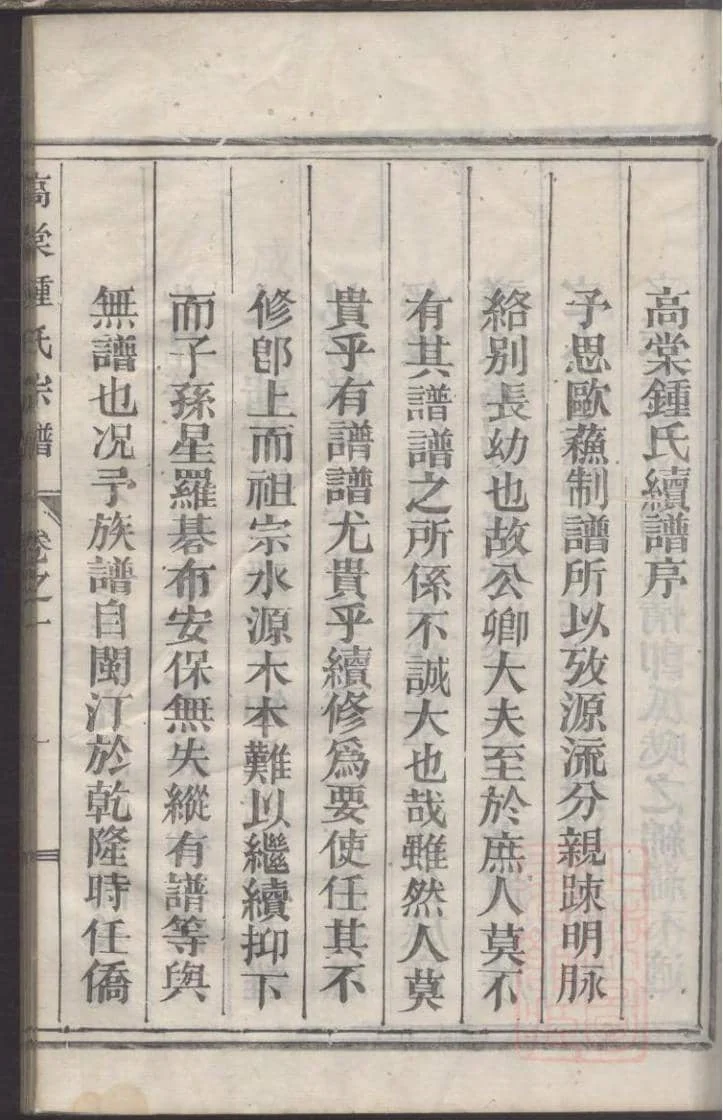 高棠鍾氏續譜序
予思歐蘓制譜所以攷源流分親踈明脉
絡别長幼也故公卿大夫至於庶人莫不
有其譜譜之所係不誠大也哉雖然人莫
貴乎有譜譜尤貴乎續修爲要使任其不
修卽上而祖宗水源木本難以繼續抑下
而子孫星羅碁布安保無失縱有譜等與
無譜也况予族譜自閩汀於乾隆時任僑
高棠鍾氏宗譜 卷之一